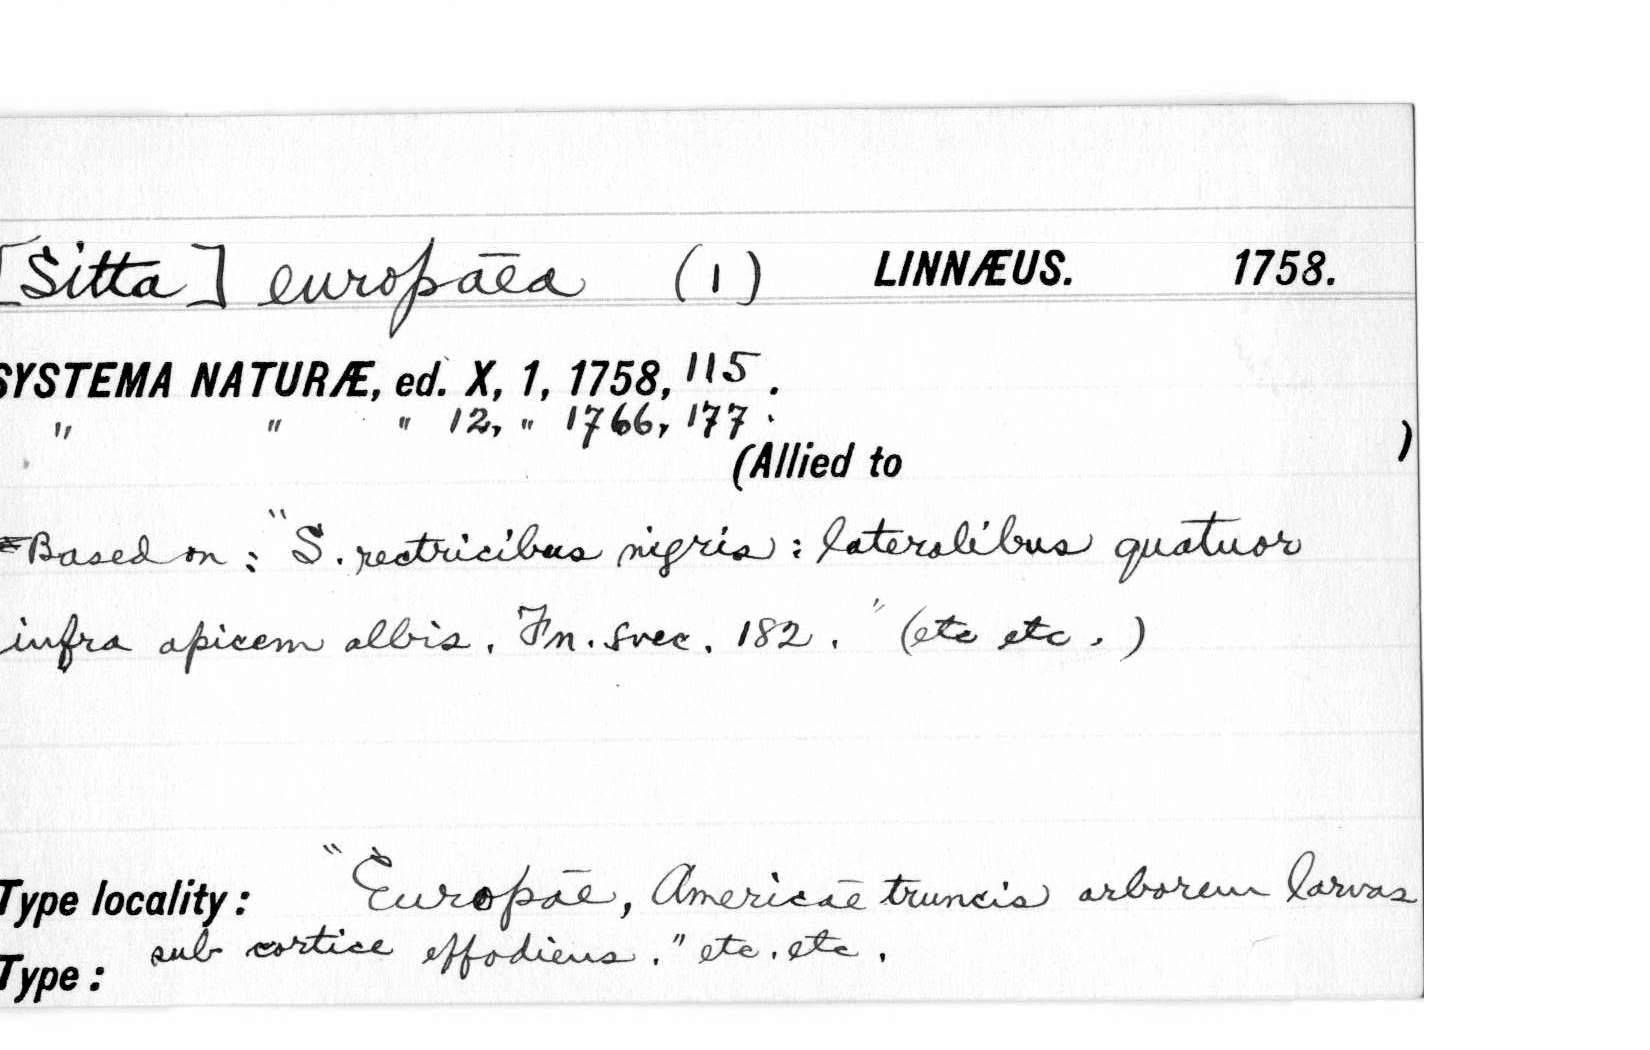 [Sitta] europāea (1) LINNÆUS. 1758.
SYSTEMA NATURÆ, ed. X, 1, 1758, 115.
" " " 12, " 1766, 177.
(Allied to )
Based on: "S. rectricibus nigris: lateralibus quatuor
infra apicem albis. Fn. svec. 182." (etc etc.)
Type locality: "Europāe, Americāe truncis arborem larvas
sub cortice effodiens." etc. etc.
Type: